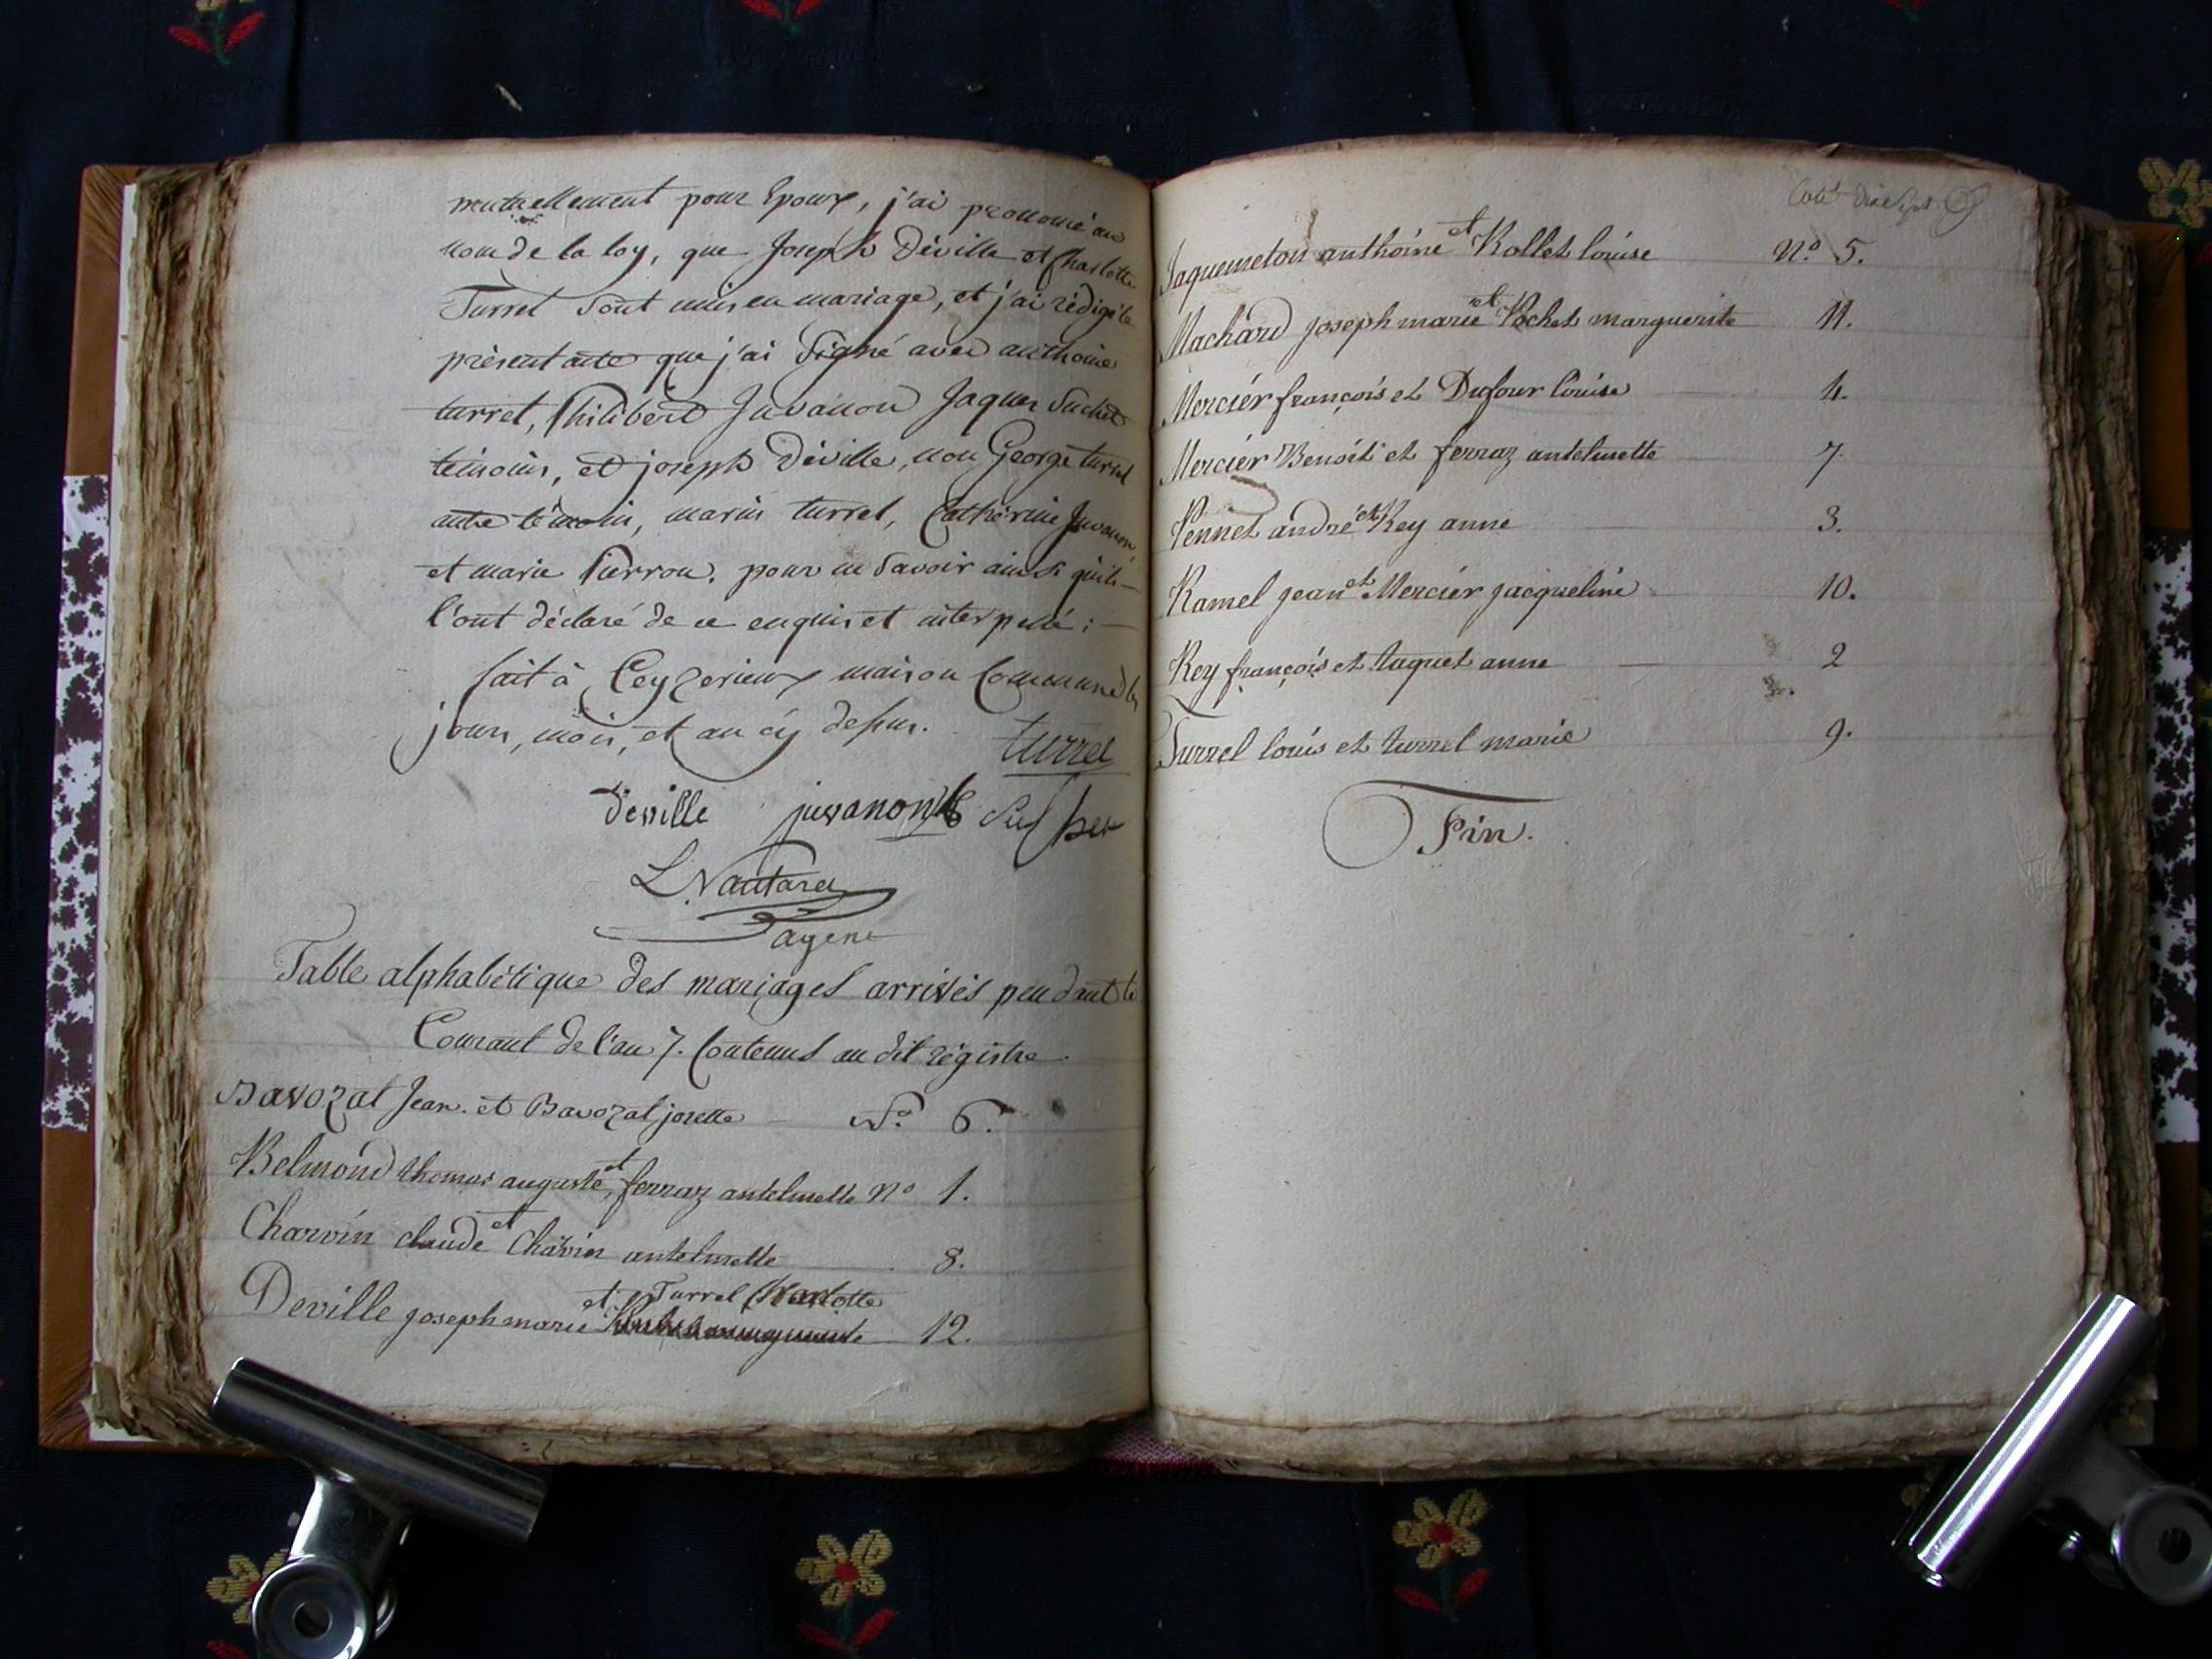 mutuellement pour Epoux, j'ai prononcé au
nom de la loy, que Joseph Déville et Charlotte
Turrel sont unis en mariage, et j'ai rédigé le
présent acte que j'ai Signé avec anthoine
turrel, Philibert Juvanon Jaques Suchet
témoins, et joseph Déville, non George turrel
autre témoin, marin turrel, Catherine Juvanon,
et marie Pierron. pour ne Savoir ainsi qu'ils
l'ont déclaré de ce enquis et interpellé ;
fait à Ceyzerieux maison Commune les
jours, mois, et an cy dessus.
turrel
deville juvanon Suchet
L. Vautaret
agent
Table alphabétique des mariages arrivés pendant le
Courant de l'an 7. Contenus au dit régistre.
Bavozat Jean. et Bavozat josette N.º 6.
Belmond thomas auguste et ferraz antelmette nº 1.
Charvin claude et Chavin antelmette 8.
Deville joseph marie et Turrel Charlotte 12.
Jaquemeton anthoine et Rollet louise n.º 5.
Machard joseph marie et Pochet marguerite 11.
Merciér françois et Dufour louise 4.
Merciér Benoit et ferraz antelmette 7.
Pennet andré et Rey anne 3.
Ramel jean et Merciér jacqueline 10.
Rey françois et tuquet anne 2
Turrel louis et turrel marie 9.
Fin.